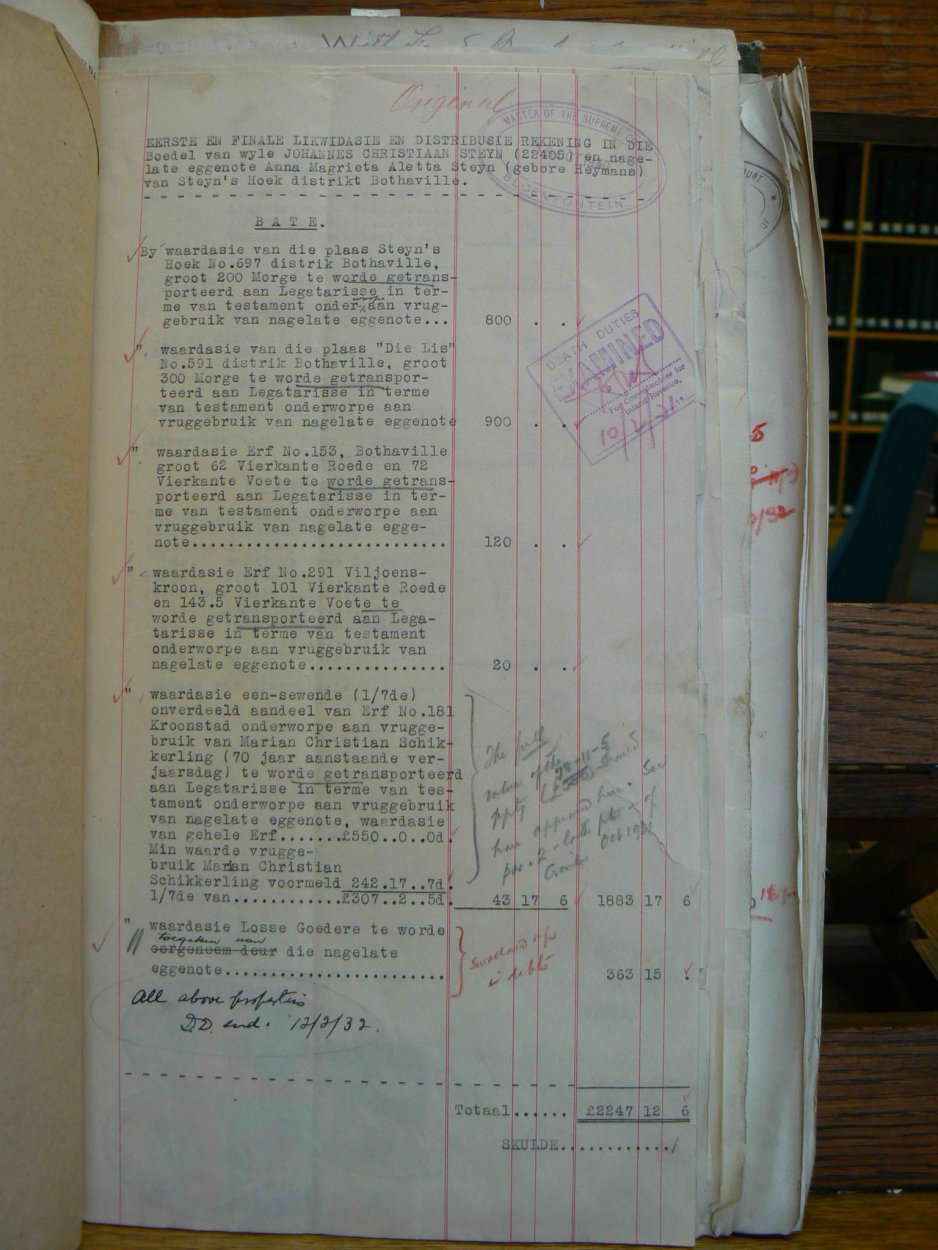 Original
MASTER OF THE SUPREME
BLOEMFONTEIN.
EERSTE EN FINALE LIKWIDASIE EN DISTRIBUSIE REKENING IN DIE
Boedel van wyle JOHANNES CHRISTIAAN STEYN (22405) en nage-
late eggenote Anna Magrieta Aletta Steyn (gebore Heymans)
van Steyn's Hoek distrikt Bothaville.
BATE.
By waardasie van die plaas Steyn's
Hoek No.697 distrik Bothaville,
groot 200 Morge te worde getrans-
porteerd aan Legatarisse in ter-
worpe
me van testament onder aan vrug-
gebruik van nagelate eggenote... 800 . .
" waardasie van die plaas "Die Lis"
No.591 distrik Bothaville, groot
300 Morge te worde getranspor-
teerd aan Legatarisse in terme
van testament onderworpe aan
vruggebruik van nagelate eggenote 900 . .
DEATH DUTIES
EXAMINED
For Commissioner for
Inland Revenue.
" waardasie Erf No.153, Bothaville
groot 62 Vierkante Roede en 72
Vierkante Voete te worde getrans-
porteerd aan Legatarisse in ter-
me van testament onderworpe aan
vruggebruik van nagelate egge-
note............................ 120 . .
" waardasie Erf No.291 Viljoens-
kroon, groot 101 Vierkante Roede
en 143.5 Vierkante Voete te
worde getransporteerd aan Lega-
tarisse in terme van testament
onderworpe aan vruggebruik van
nagelate eggenote............... 20 . .
" waardasie een-sewende (1/7de)
onverdeeld aandeel van Erf No.181
Kroonstad onderworpe aan vrugge-
bruik van Marian Christian Schik-
kerling (70 jaar aanstaande ver-
jaarsdag) te worde getransporteerd
aan Legatarisse in terme van tes-
tament onderworpe aan vruggebruik
van nagelate eggenote, waardasie
van gehele Erf.......£550..0..0d.
Min waarde vrugge-
bruik Marian Christian
Schikkerling voormeld 242.17..7d.
1/7de van............£307..2..5d. 43 17 6 1883 17 6
The full
value of the
ppty should
have appeared here. See
par. 2
" waardasie Losse Goedere te worde
toegeken aan
oorgeneem deur die nagelate
eggenote........................ 363 15 .
in debts
All above properties
D.D. end. 12/2/32.
Totaal...... £2247 12 6
SKULDE............/